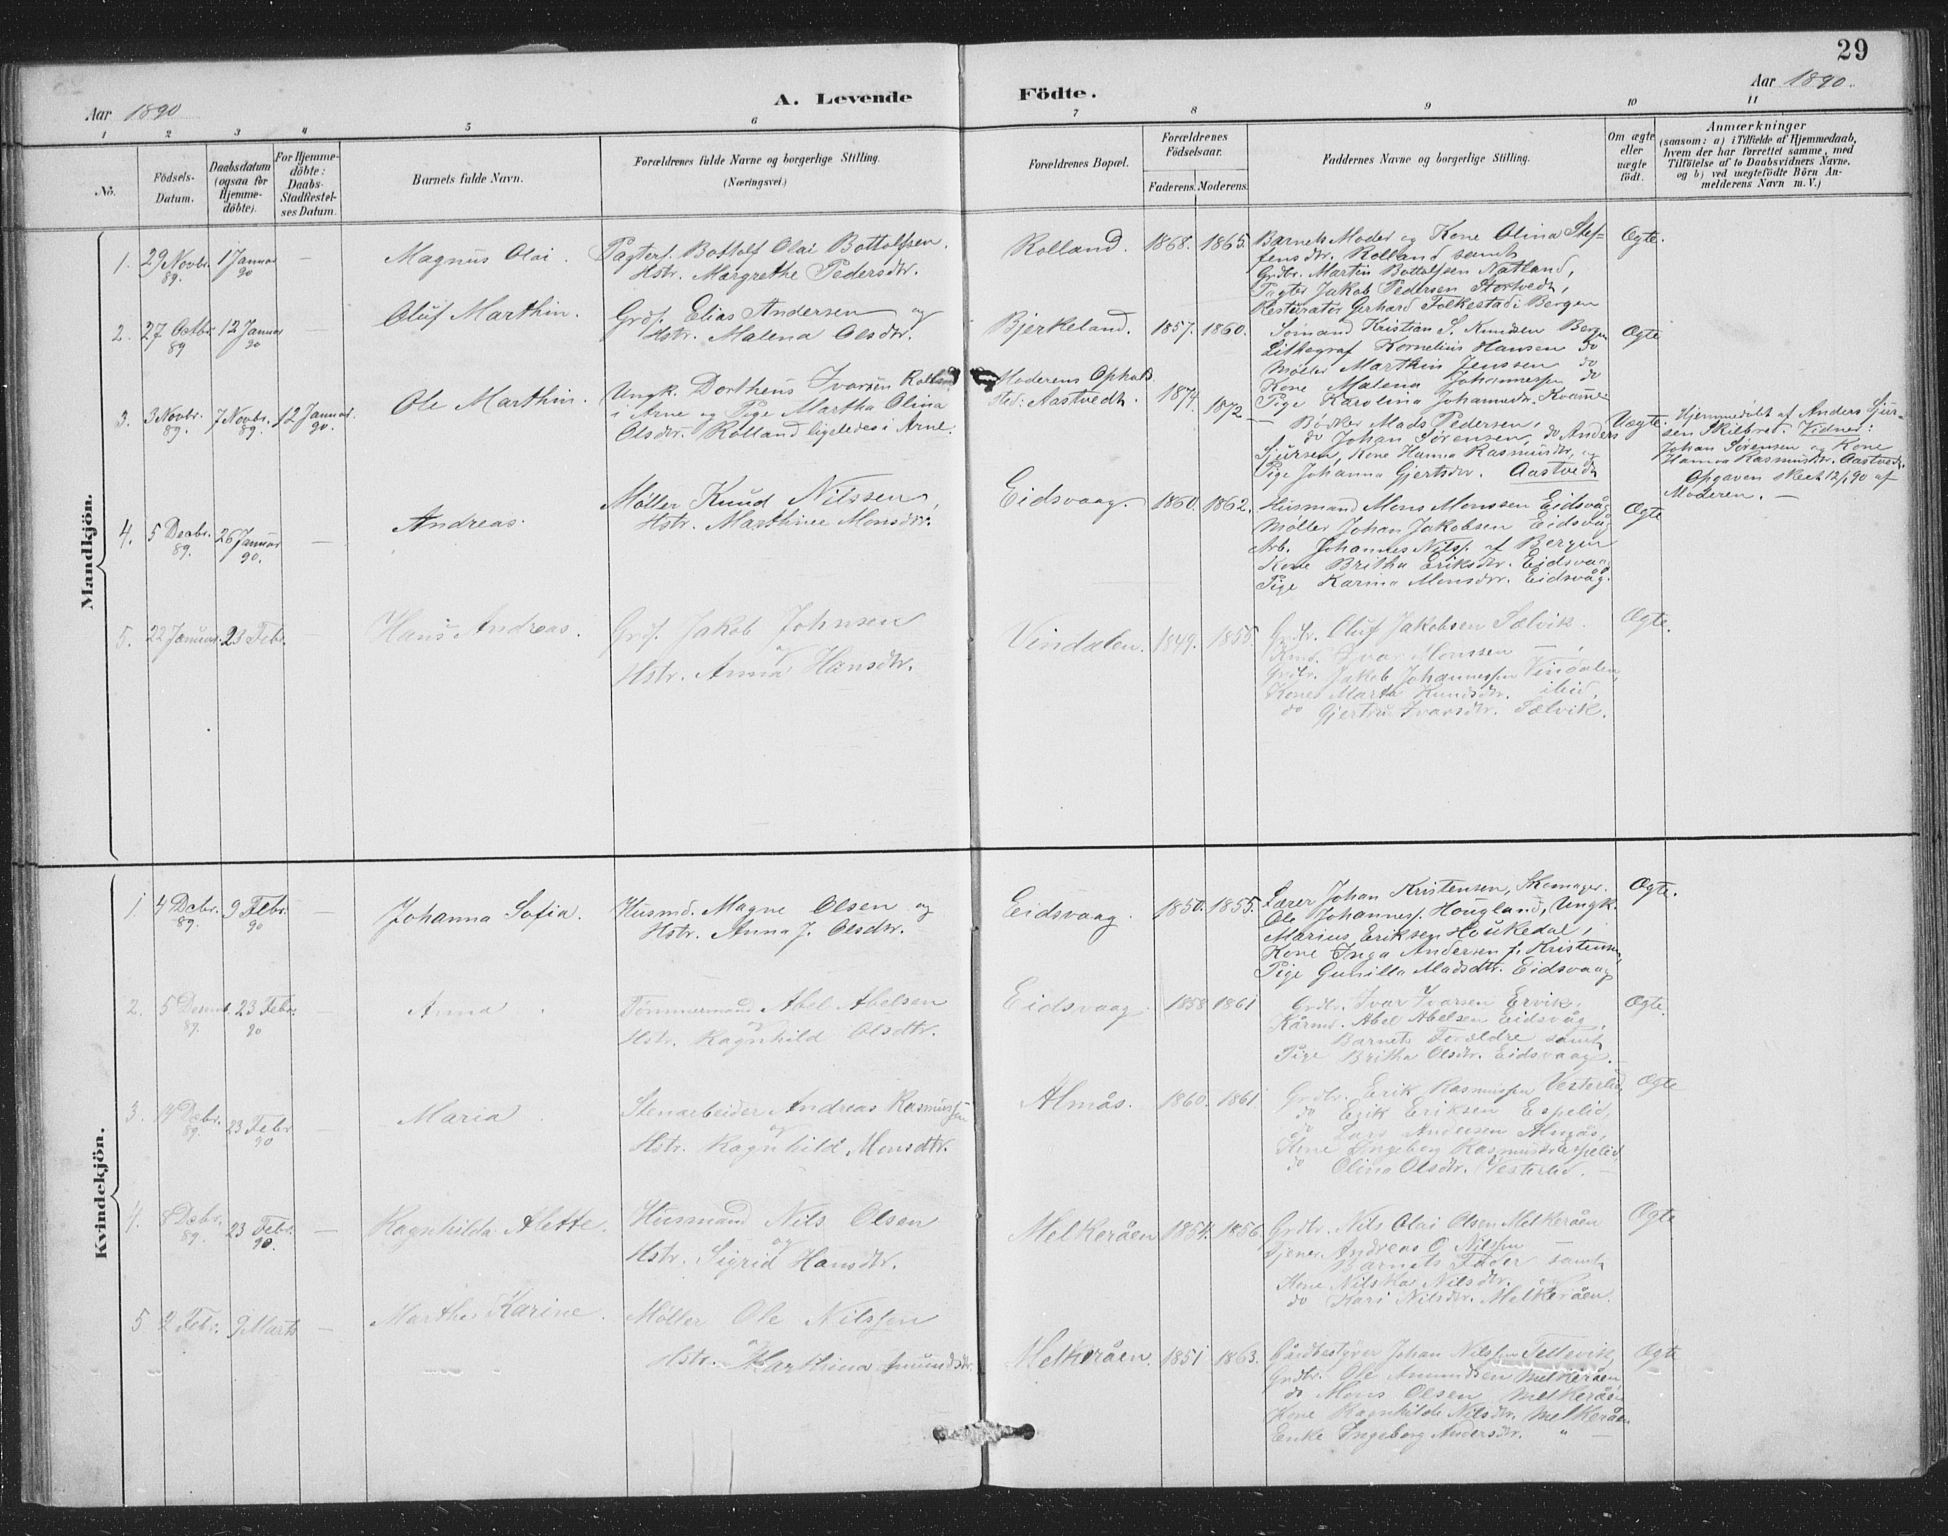 29
Aar 1890
A. Levende Födte.
Aar 1890.
1 2 3 4 5 6 7 8 9 10 11
No.
Födsels-
Datum.
Daabsdatum
(ogsaa for
Hjemme-
döbte).
For Hjemme-
döbte:
Daabs-
Stadfestel-
ses Datum.
Barnets fulde Navn.
Forældrenes fulde Navne og borgerlige Stilling.
(Næringsvei.)
Forældrenes Bopæl.
Forældrenes
Födselsaar.
Faderens. Moderens.
Faddernes Navne og borgerlige Stilling.
Om ægte
eller
uægte
födt.
Anmærkninger
(saasom: a) i Tilfælde af Hjemmedaab,
hvem der har forrettet samme, med
Tilföielse af to Daabsvidners Navne,
og b) ved uægtefödte Börn An-
melderens Navn m. V.)
Mandkjön.
1. 29 Novbr. 89. 1 Januar 90 —
Magnus Olai.
Pagterf. Bottolf Olai Bottolfsen
Hstr. Margrethe Pedersdtr.
Rolland. 1868. 1865.
Barnets Moder og Kone Olina Stef-
fensdtr. Rolland samt
Grdbr. Martin Bottolfsen Natland,
Pagter Jakob Pedersen Stortvedt,
Restauratør Gerhard Folkestad i Bergen
Ægte.
2. 27 Octbr. 89 12 Januar 90 —
Oluf Marthin.
Grdf. Elias Andersen og
Hstr. Malena Olsdtr.
Bjerkeland. 1857. 1860.
Sømand Kristian S. Knudsen Bergen
Lithograf Kornelius Hansen do
Møller Marthin Jenssen do
Kone Malena Johannessen do
Pige Karolina Johannesdtr. Kvamme
Ægte
3. 3 Novbr. 89. 7 Novbr. 89. 12 Januar 90.
Ole Marthin.
Ungk. Dortheus Ivarsen Rolland
i Arne og Pige Martha Olina
Olsdtr. Rolland ligeledes i Arne.
Moderens Ophold-
sted: Aastvedt. 1874. 1872
Bødker Mads Pedersen,
do Johan Sørensen, do Anders
Sjursen, Kone Hanna Rasmusdtr, og
Pige Johanna Gjertsdtr. Aastvedt
Uægte.
Hjemmedöbt af Anders Sjur-
sen Skilbred. Vidner:
Johan Sørensen og Kone
Hanna Rasmusdtr. Aastvedt.
Opgaven skeet 12/1 90 af
Moderen. —
4. 5 Decbr. 89. 26 Januar 90. —
Andreas.
Møller Knud Nilssen,
Hstr. Marthine Monsdtr.
Eidsvaag. 1860. 1862.
Husmand Mons Monssen Eidsvåg
Møller Johan Jakobsen Eidsvåg
Arb. Johannes Nilsf. af Bergen
Kone Britha Eriksdtr. Eidsvaag
Pige Karina Monsdtr. Eidsvåg.
Ægte
5. 22 Januar. 23 Febr. —
Hans Andreas.
Grdf. Jakob Johnsen
og
Hstr. Anna Hansdtr.
Vindalen. 1849. 1855.
Grdbr. Oluf Jakobsen Sælvik.
Ivar Monssen —
Grdbr. Jakob Johannessen Vindalen,
Kone Marta Knudsdtr. ibid,
do Gjertru Ivarsdtr. Sælvik.
Ægte.
Kvindekjön.
1. 4 Dcbr. 89. 9 Febr. 90 —
Johanna Sofia.
Husmd. Magne Olsen og
Hstr. Anna J. Olsdtr.
Eidsvaag. 1850. 1855.
Lærer Johan Kristensen, Skomager.
Ole Johannesf. Hougland, Ungk.
Marius Eriksen Houkedal,
Kone Inga Andersen f. Kristensen,
Pige Gunilla Madsdtr. Eidsvaag
Ægte.
2. 5 Decmb. 89. 23 Febr. 90 —
Anna.
Tømmermand Abel Abelsen
og
Hstr. Ragnhild Olsdtr.
Eidsvaag. 1858 1861
Grdbr. Ivar Ivarsen Ervik.
Kårmd. Abel Abelsen Eidsvåg,
Barnets Forældre samt
Pige Britha Olsdtr. Eidsvaag.
Ægte.
3. 14 Decbr. 89. 23 Febr 90 —
Maria.
Stenarbeider Andreas Rasmussen
og
Hstr. Ragnhild Monsdtr.
Almås. 1860. 1861.
Grdbr. Erik Rasmussen Vesterlid
do Erik Eriksen Espelid,
do Lars Andersen Almås,
Kone Ingeborg Rasmusdtr Espelid
do Olina Olsdtr. Vesterlid. —
Ægte
4. 8 Decbr. 89. 23 Febr. 90. —
Ragnhilda Alette.
Husmand Nils Olsen
og
Hstr. Sigrid Hansdtr.
Melkeråen 1854. 1856.
Grdbr. Nils Olai Olsen Melkeråen
Tjener Andreas O. Nilssen —
Barnets Fader samt
Kone Nilska Nilsdtr. og
do Kari Nilsdtr. Melkeråen.
Ægte
5 2 Febr. 9 Marts —
Marthe Karine.
Møller Ole Nilssen
og
Hstr. Marthina Amundsdtr.
Melkeråen. 1851 1863.
Gårdbestyrer Johan Nilssen Tellevik,
Grdbr. Ole Amundsen Melkeråen
do Mons Olsen Melkeråen
Kone Ragnhilde Nilsdtr. Melkeråen
Enke Ingeborg Andersdtr. " —
Ægte